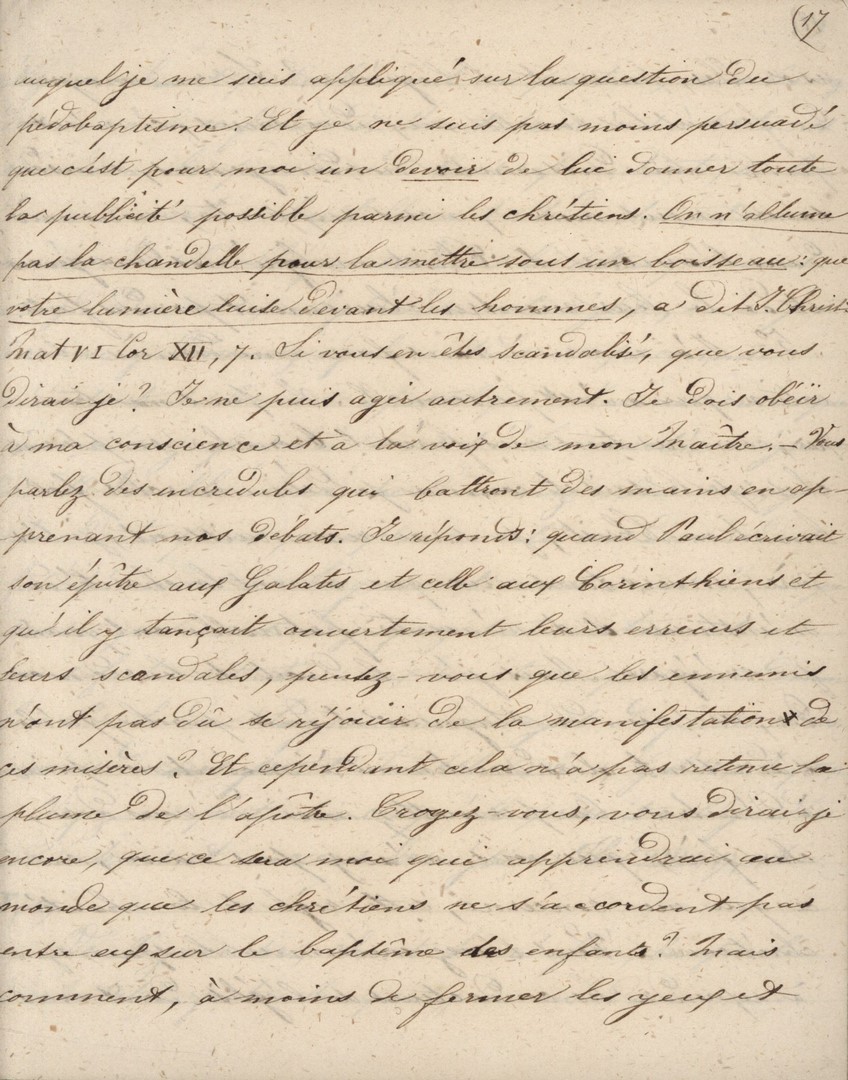 (17
auquel je me suis appliqué sur la question du
pédobaptisme. Et je ne suis pas moins persuadé
que c'est pour moi un devoir de lui donner toute
la publicité possible parmi les chrétiens. On n'allume
pas la chandelle pour la mettre sous un boisseau: que
votre lumière luise devant les hommes, a dit J. Christ.
Mat VI Cor XII, 7. Si vous en êtes scandalisé, que vous
dirai-je? Je ne puis agir autrement. Je dois obéir
à ma conscience et à la voix de mon Maître. — Vous
parlez des incrédules qui battront des mains en ap-
prenant nos débats. Je réponds: quand Paul écrivait
son épître aux Galates et celle aux Corinthiens et
qu'il y tançait ouvertement leurs erreurs et
leurs scandales, pensez-vous que les ennemis
n'ont pas dû se réjouir de la manifestation de
ces misères? Et cependant cela n'a pas retenu la
plume de l'apôtre. Croyez-vous, vous dirai-je
encore, que ce sera moi qui apprendrai au
monde que les chrétiens ne s'accordent pas
entre eux sur le baptême des enfants? Mais
comment, à moins de fermer les yeux et